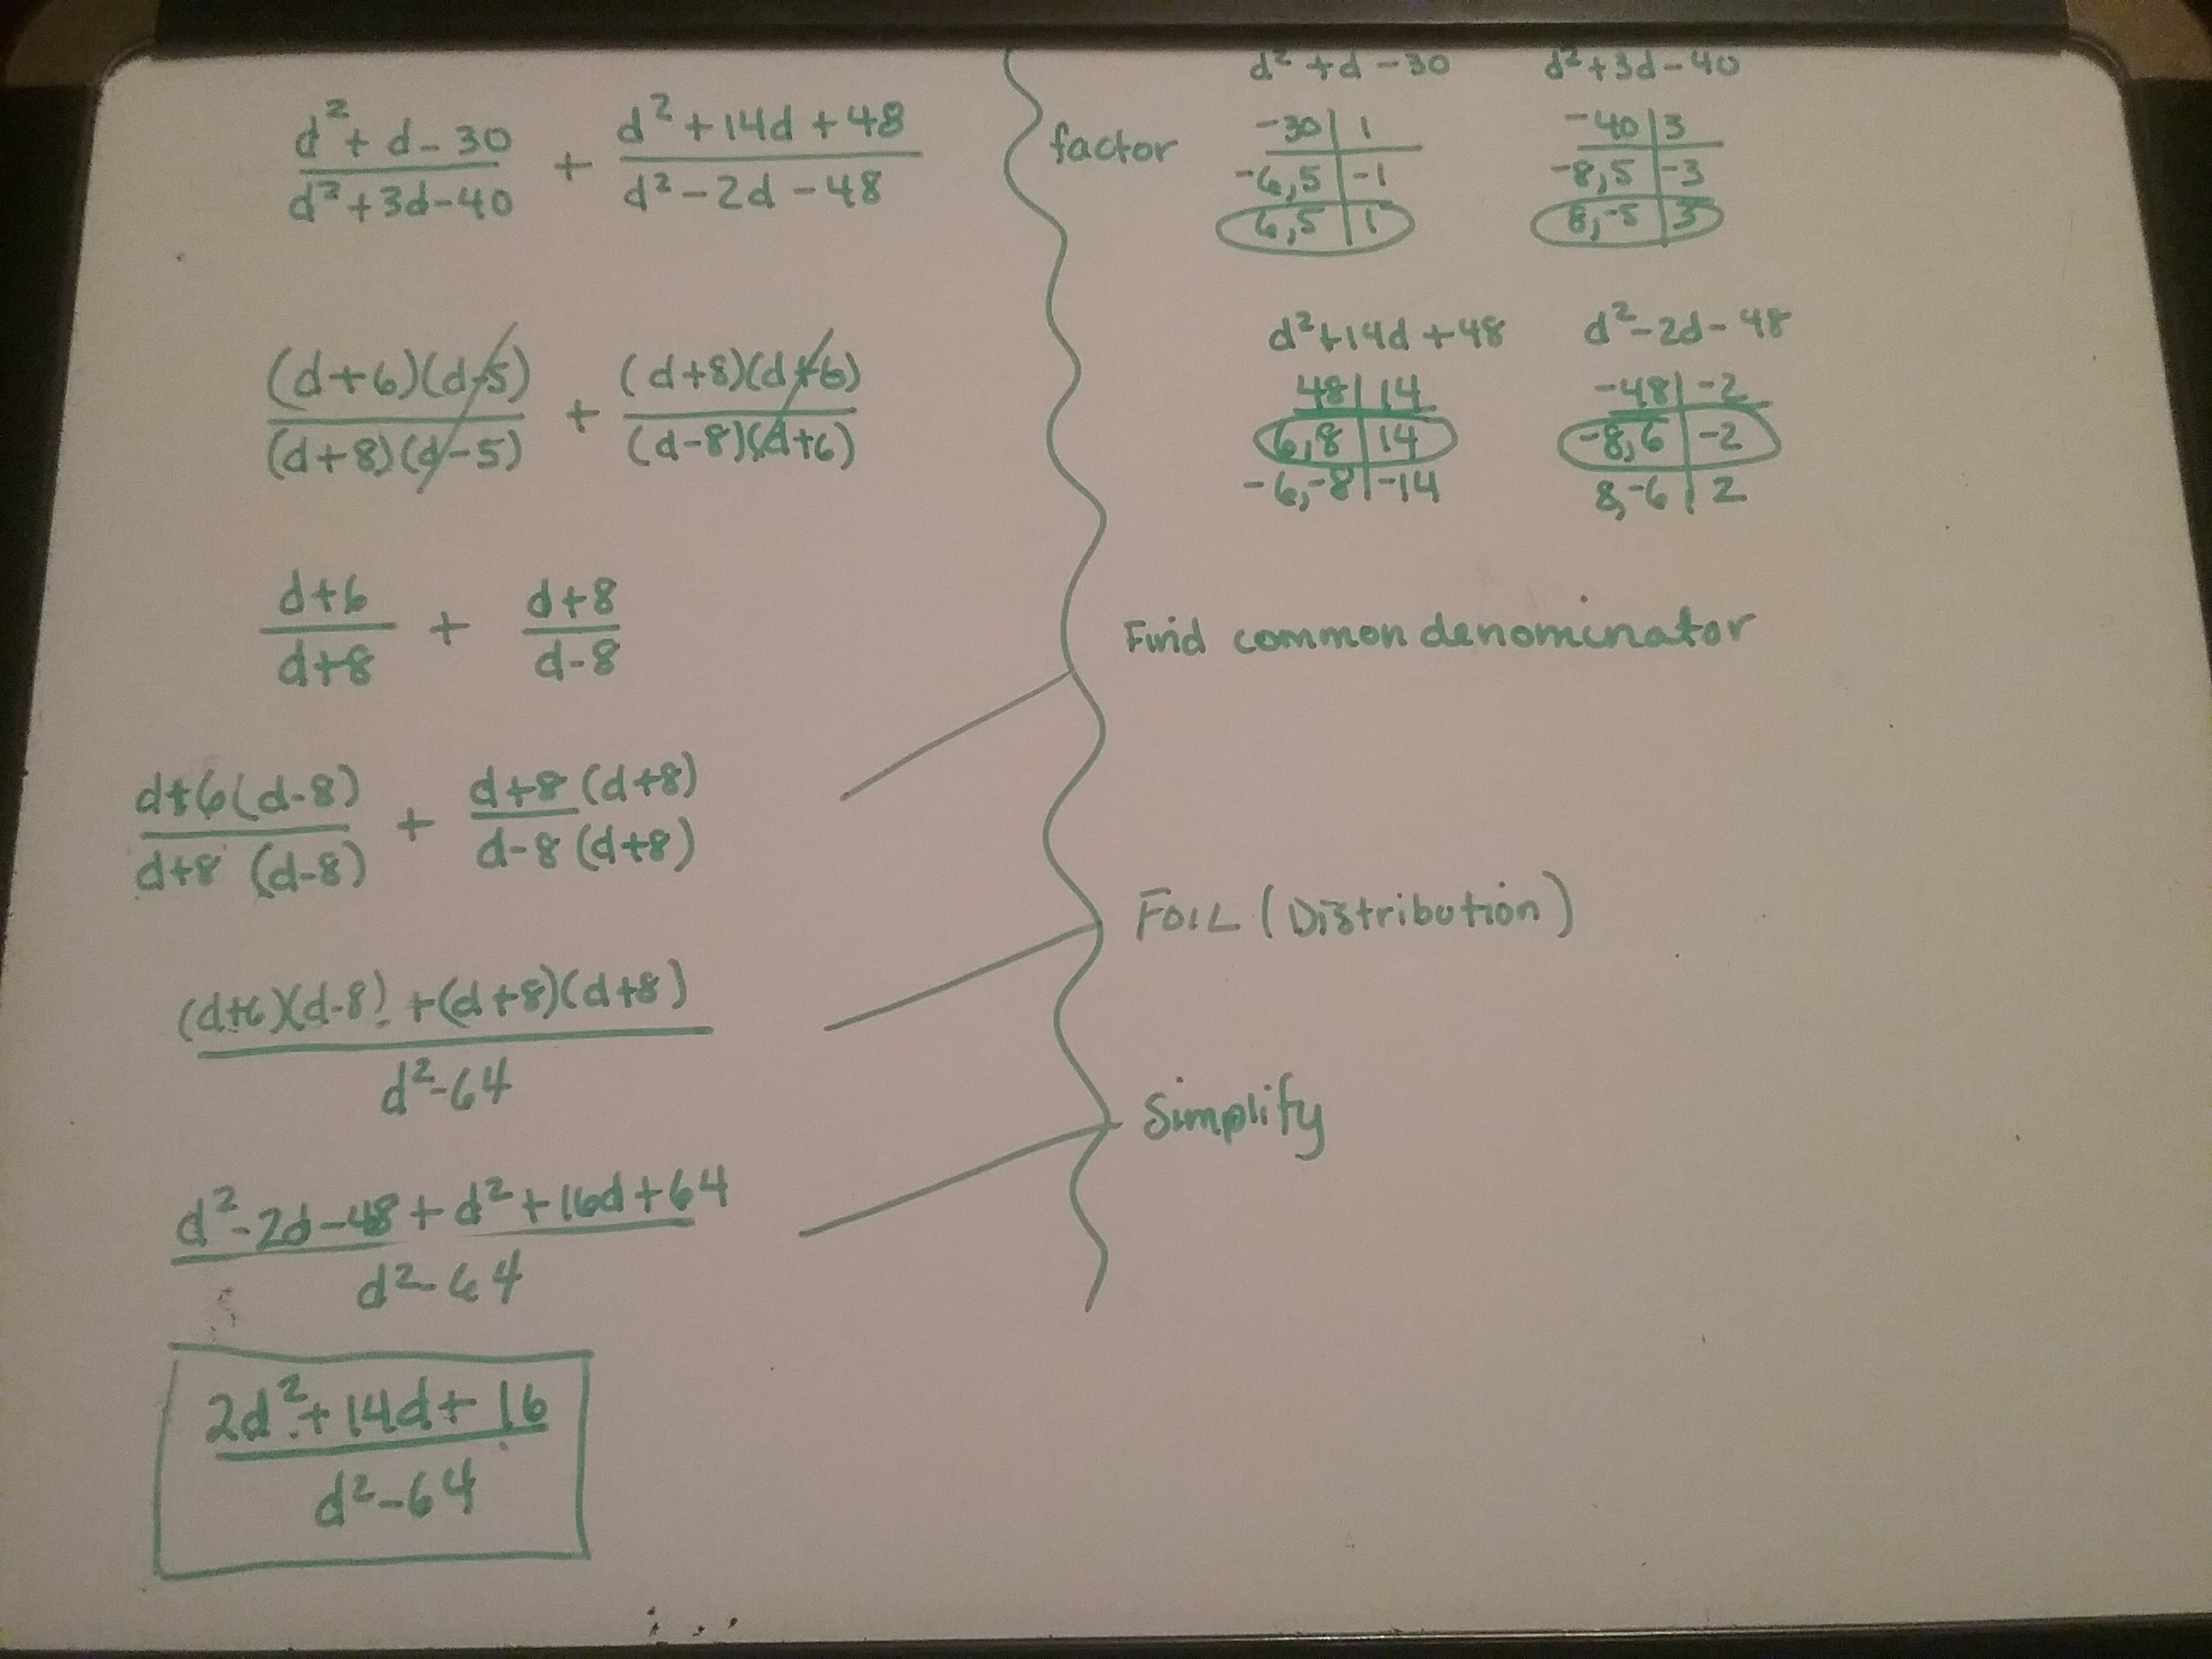 d² + d - 30 / d² + 3d - 40 + d² + 14d + 48 / d² - 2d - 48
(d+6)(d-5) / (d+8)(d-5) + (d+8)(d+6) / (d-8)(d+6)
d+6 / d+8 + d+8 / d-8
d+6(d-8) / d+8 (d-8) + d+8 (d+8) / d-8 (d+8)
(d+6)(d-8) + (d+8)(d+8) / d²-64
d²-2d-48 + d²+16d+64 / d²-64
2d² + 14d + 16 / d²-64
factor
d² + d - 30
-30 | 1
-6,5 | -1
6,5 | 1
d² + 3d - 40
-40 | 3
-8,5 | -3
8,-5 | 3
d² + 14d + 48
48 | 14
6,8 | 14
-6,-8 | -14
d² - 2d - 48
-48 | -2
-8,6 | -2
8,-6 | 2
Find common denominator
FOIL (Distribution)
Simplify